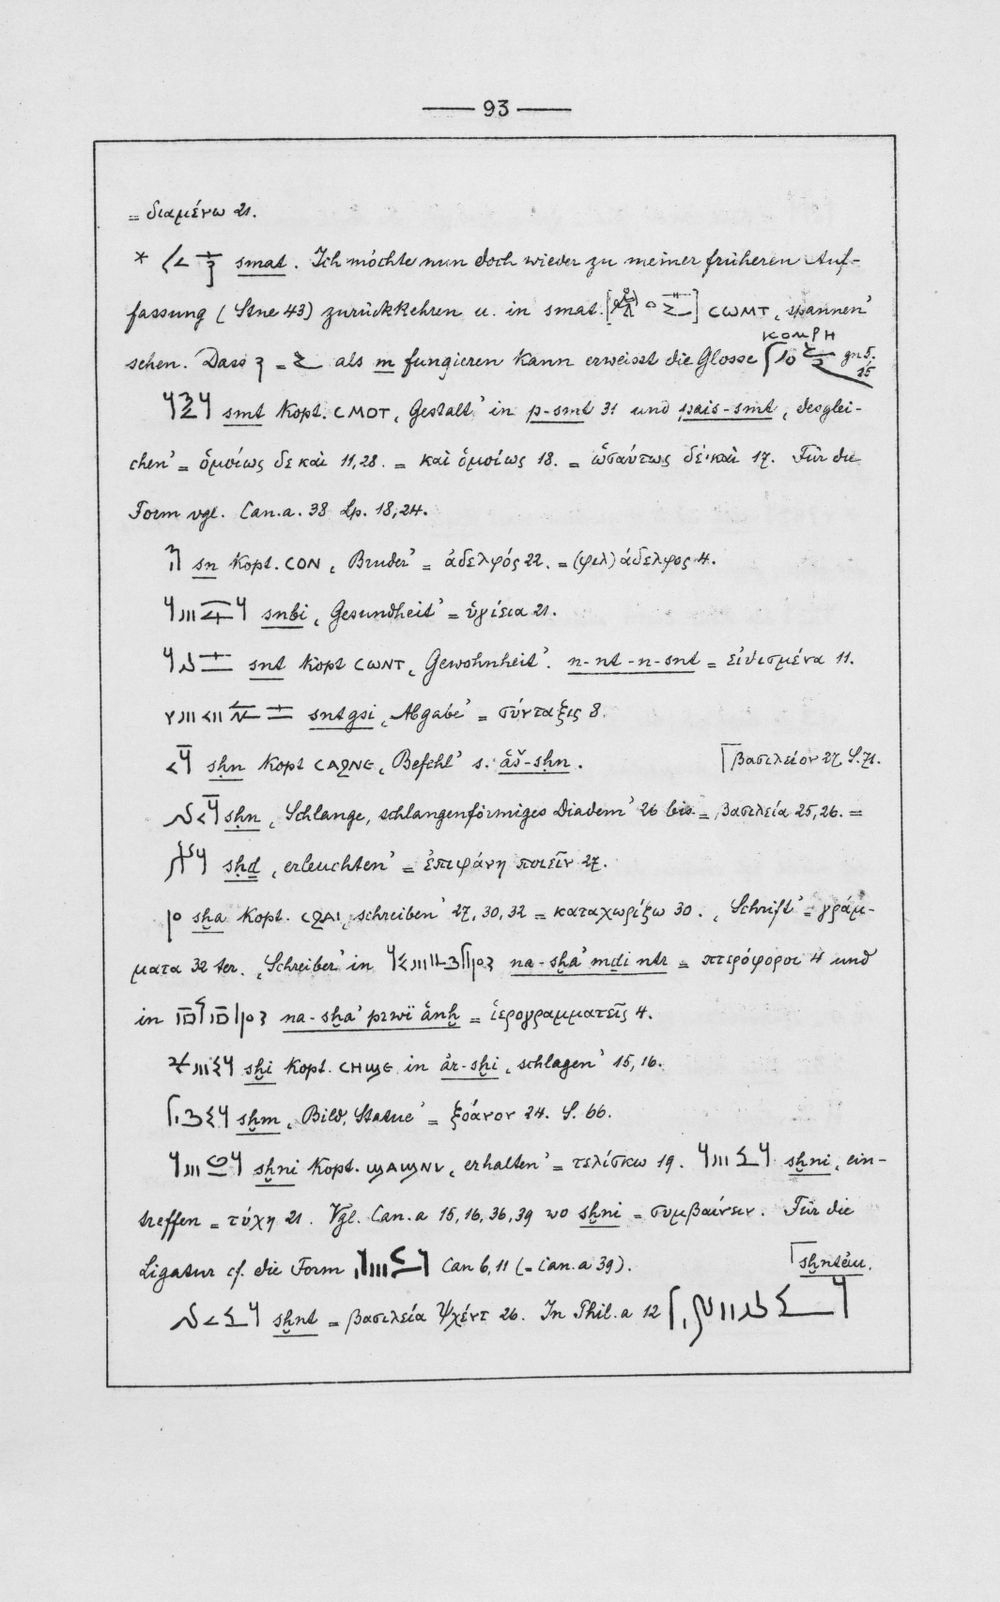 93
= διαμένω 21.
* smat. Ich möchte nun doch wieder zu meiner früheren Auf-
fassung (Stne 43) zurückkehren u. in smat. [ ] ⲥⲱⲙⲧ ‚spannen’
ⲕⲟⲙⲣⲏ
sehen. Dass = als m fungieren kann erweisst die Glosse gn. 5.
15
smt Kopt. ⲥⲙⲟⲧ ‚Gestalt’ in p-smt 31 und pais-smt ‚desglei-
chen’ = ὁμοίως δε καὶ 11,28. = καὶ ὁμοίως 18. = ὡσαύτως δὲ καὶ 17. Für die
Form vgl. Can.a. 38 Lp. 18,24.
sn Kopt. ⲥⲟⲛ ‚Bruder’ = ἀδελφός 22. = (φιλ)άδελφος 4.
snbi ‚Gesundheit’ = ὑγίεια 21.
snt Kopt ⲥⲱⲛⲧ ‚Gewohnheit’. n-nt-n-snt = εἰθισμένα 11.
sntgsi ‚Abgabe’ = σύνταξις 8.
sḥn Kopt ⲥⲁϩⲛⲉ ‚Befehl’ s. ȧš-sḥn.
⌈βασιλείον 27. S. 71.
sḥn ‚Schlange, schlangenförmiges Diadem’ 26 bis. = βασιλεία 25,26. =
sḥḏ ‚erleuchten’ = ἐπιφάνη ποιεῖν 27.
sẖa Kopt. ⲥϩⲁⲓ ‚schreiben’ 27, 30, 32 = καταχωρίζω 30. ‚Schrift’ = γράμ-
ματα 32 ter. ‚Schreiber’ in na-sẖa’ mḏi ntr = πτερόφοροι 4 und
in na-sẖa’ prwï ȧnḫ = ἱερογραμματεῖς 4.
sḫi Kopt. ⲥⲏϣⲉ in ȧr-sḫi ‚schlagen’ 15, 16.
sḫm ‚Bild, Statue’ = ξόανον 24. S. 66.
sḫni Kopt. ϣⲁϣⲛⲓ ‚erhalten’ = τελίσκω 19. sḫni ‚ein-
treffen = τύχη 21. Vgl. Can.a 15, 16, 36, 39 wo sḫni = συμβαίνειν. Für die
Ligatur cf. die Form Can 6, 11 (= Can.a 39).
⌈sḫntėu.
sḫnt = βασιλεία Ψχέντ 26. In Phil.a 12